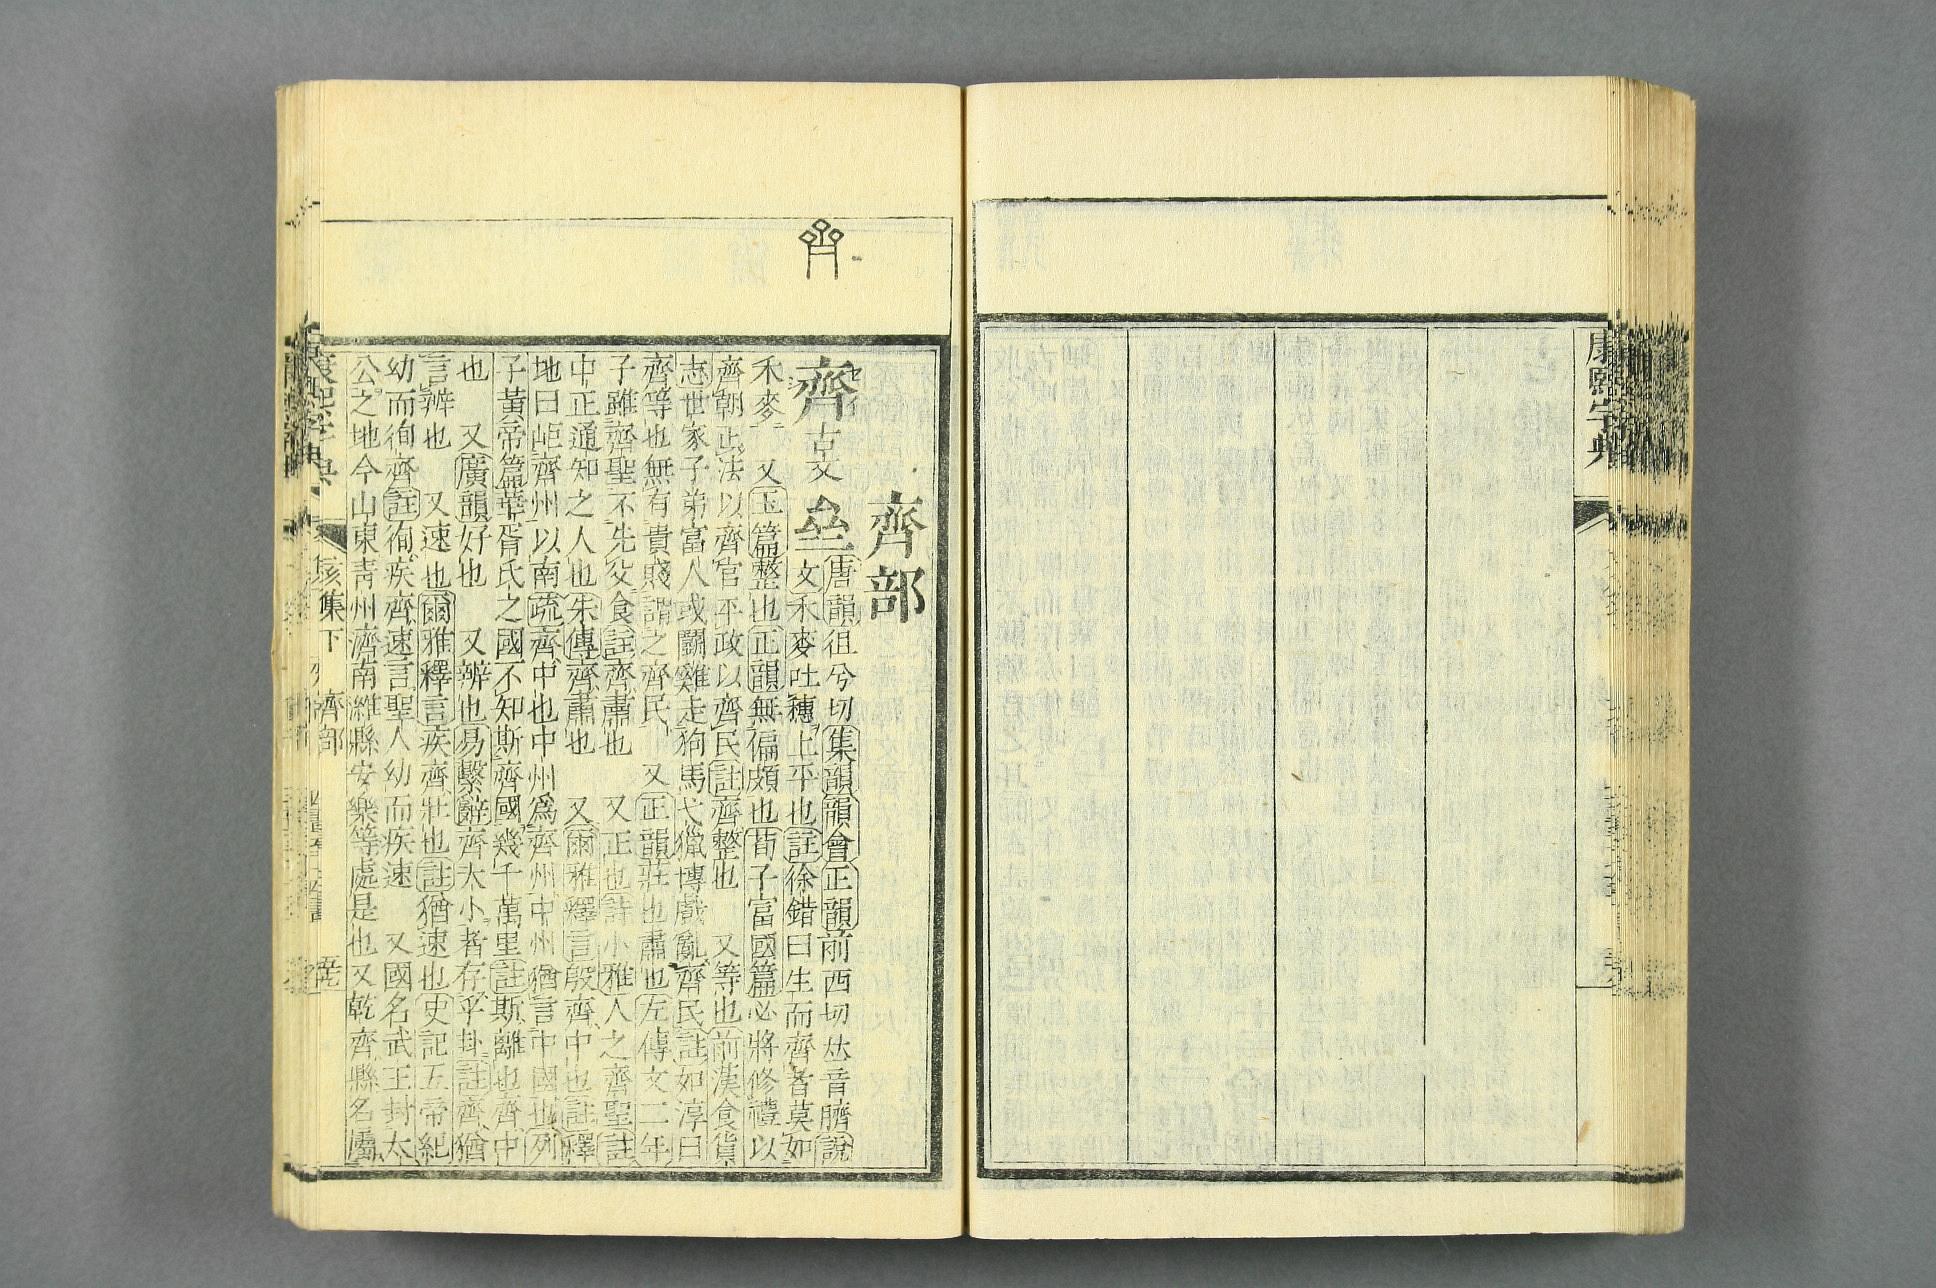 康熙字典
齊部
齊 古文 亝 唐韻徂兮切集韻韻會正韻前西切𠀤音臍說
文禾麥吐穗上平也註徐鍇曰生而齊者莫如
禾麥 又玉篇整也正韻無偏頗也荀子富國篇必將修禮以
齊朝正法以齊官平政以齊民註齊整也 又等也前漢食貨
志世家子弟富人或鬭雞走狗馬弋獵博戲亂齊民註如淳曰
齊等也無有貴賤謂之齊民 又正韻莊也肅也左傳文二年
子雖齊聖不先父食註齊肅也 又正也詩小雅人之齊聖註
中正通知之人也朱傳齊肅也 又爾雅釋言殷齊中也註釋
地曰岠齊州以南疏齊中也中州爲齊州中州猶言中國也列
子黃帝篇華胥氏之國不知斯齊國幾千萬里註斯離也齊中
也 又廣韻好也 又辨也易繫辭齊大小者存乎卦註齊猶
言辨也 又速也爾雅釋言疾齊壯也註猶速也史記五帝紀
幼而徇齊註徇疾齊速言聖人幼而疾速 又國名武王封太
公之地今山東青州濟南濰縣安樂等處是也又乾齊縣名屬
康熙字典
亥集下
齊部